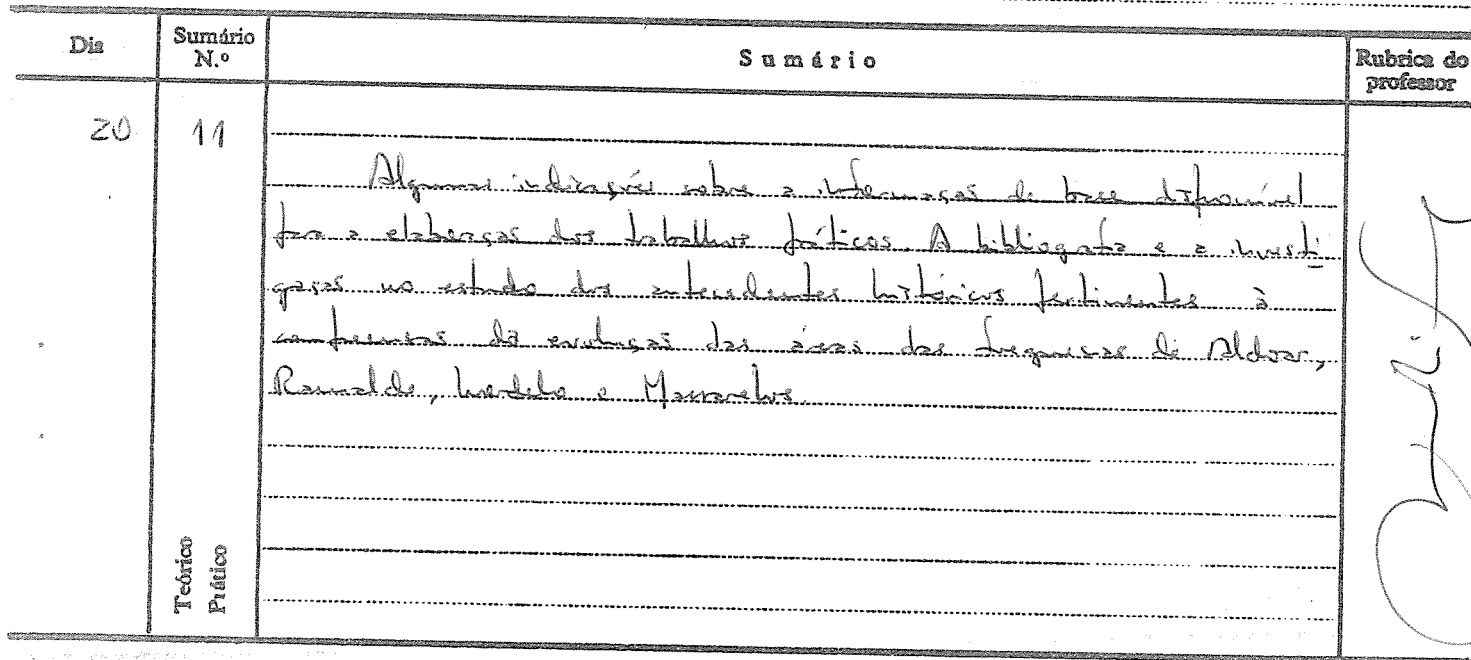 Dia
Sumário N.º
Sumário
Rubrica do professor
20
11
Algumas indicações sobre a informação de base disponível
para a elaboração dos trabalhos práticos. A bibliografia e a investi-
gação no estudo dos antecedentes históricos pertinentes à
compreensão da evolução das áreas das freguesias de Aldoar,
Ramalde, Lordelo e Massarelos.
Teórico
Prático